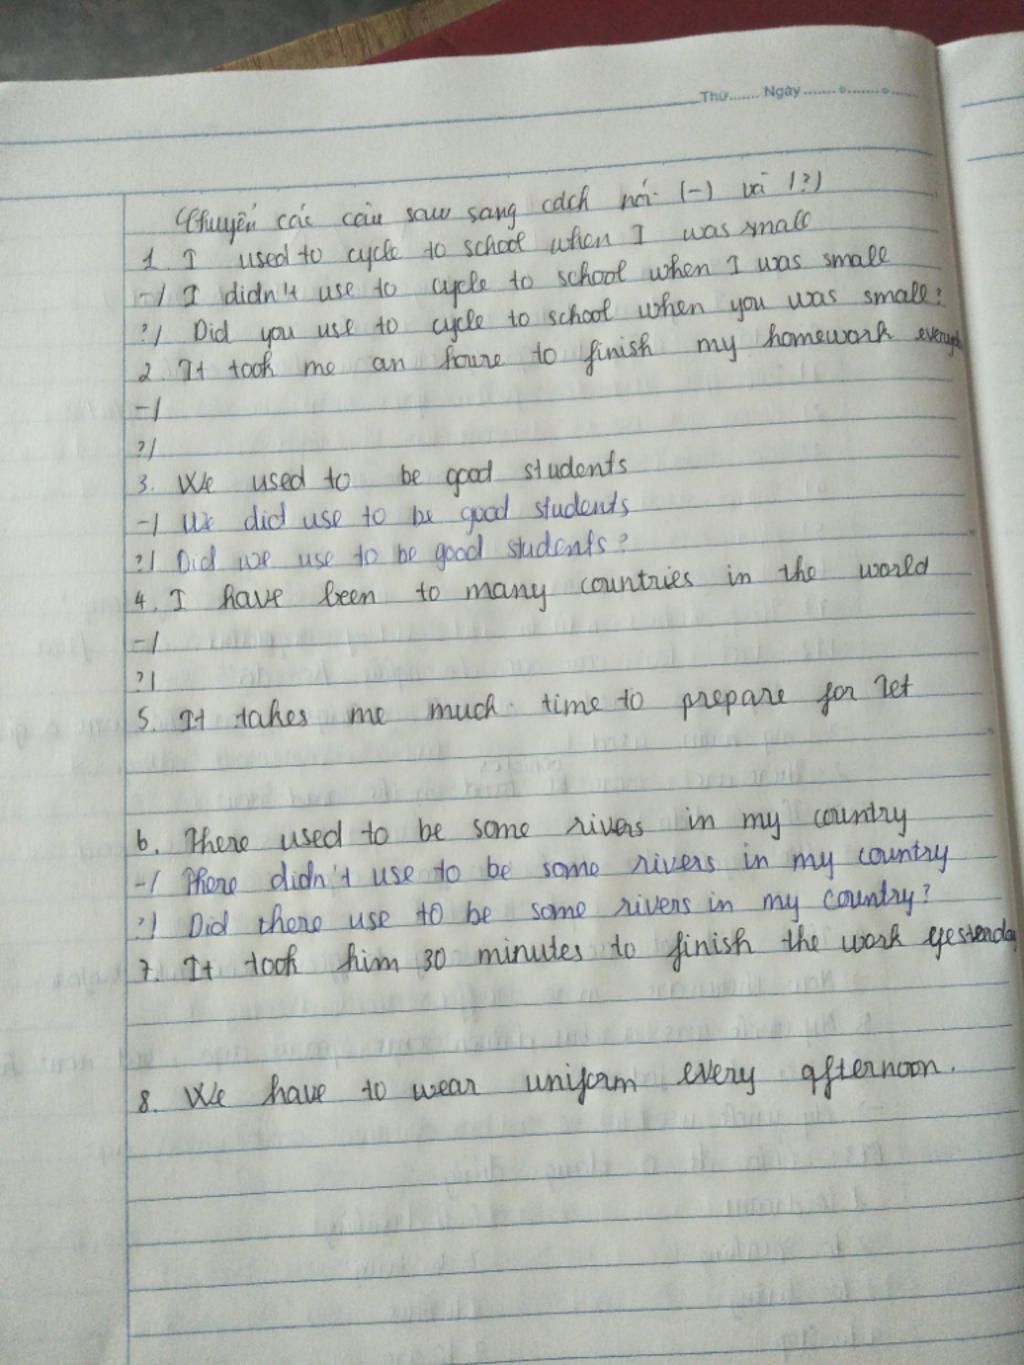 Thứ....... Ngày.......
Chuyển các câu sau sang cách nói (-) và (?)
1. I used to cycle to school when I was small
-/ I didn't use to cycle to school when I was small
?/ Did you use to cycle to school when you was small?
2. It took me an houre to finish my homework
-/
?/
3. We used to be good students
-/ We did use to be good students
?/ Did we use to be good students?
4. I have been to many countries in the world
-/
?/
5. It takes me much time to prepare for Tet
6. There used to be some rivers in my country
-/ There didn't use to be some rivers in my country
?/ Did there use to be some rivers in my country?
7. It took him 30 minutes to finish the work yesterday
8. We have to wear uniform every afternoon.